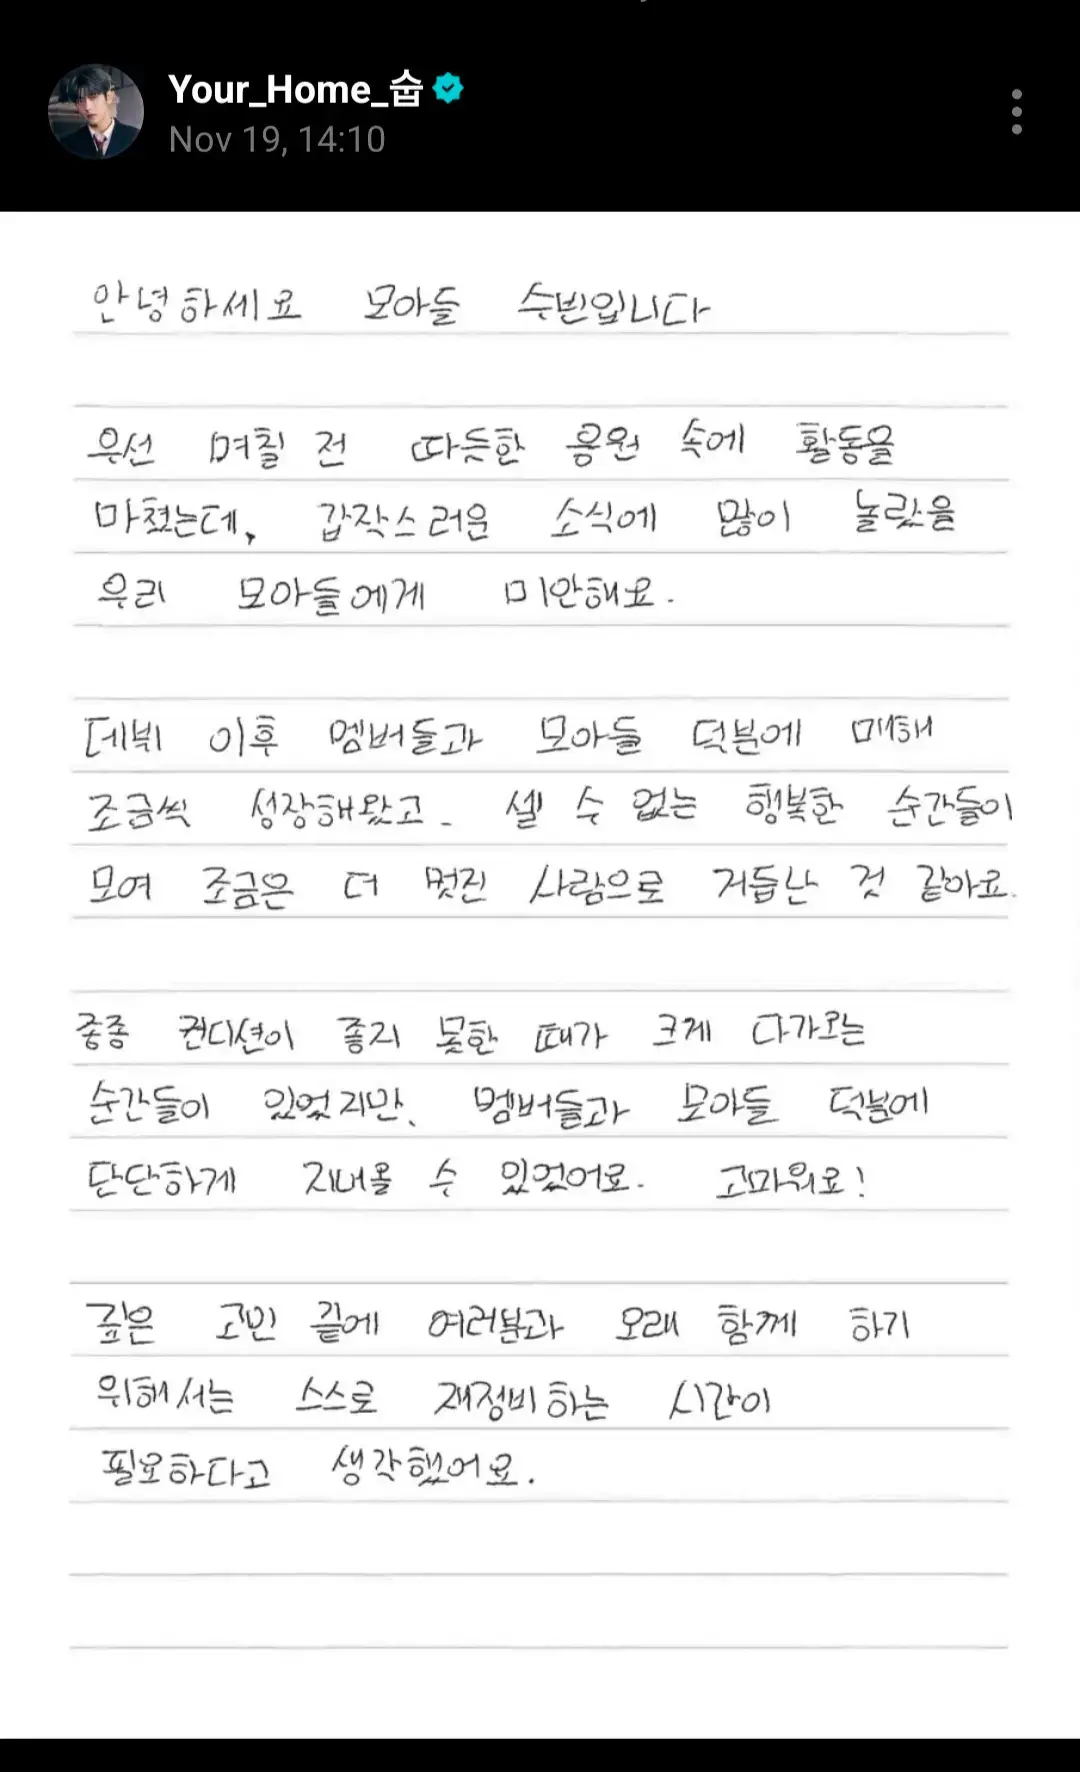 Your_Home_숩
Nov 19, 14:10
안녕하세요 모아들 수빈입니다
우선 며칠 전 따듯한 응원 속에 활동을
마쳤는데, 갑작스러운 소식에 많이 놀랐을
우리 모아들에게 미안해요.
데뷔 이후 멤버들과 모아들 덕분에 매해
조금씩 성장해왔고, 셀 수 없는 행복한 순간들이
모여 조금은 더 멋진 사람으로 거듭난 것 같아요.
종종 컨디션이 좋지 못한 때가 크게 다가오는
순간들이 있었지만, 멤버들과 모아들 덕분에
단단하게 지내올 수 있었어요. 고마워요!
깊은 고민 끝에 여러분과 오래 함께 하기
위해서는 스스로 재정비하는 시간이
필요하다고 생각했어요.